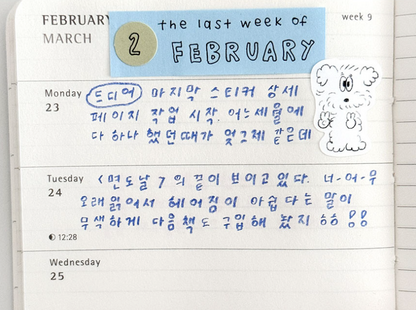 FEBRUARY
MARCH
2
the last week of
FEBRUARY
week 9
Monday
23
드디어 마지막 스티커 상세
페이지 작업 시작. 어느세월에
다 하나 했던때가 엊그제 같은데
Tuesday
24
<면도날>의 끝이 보이고있다. 너-어-무
오래읽어서 헤어짐이 아쉽다는 말이
무색하게 다음책도 구입해 놨지 하하 !!
12:28
Wednesday
25